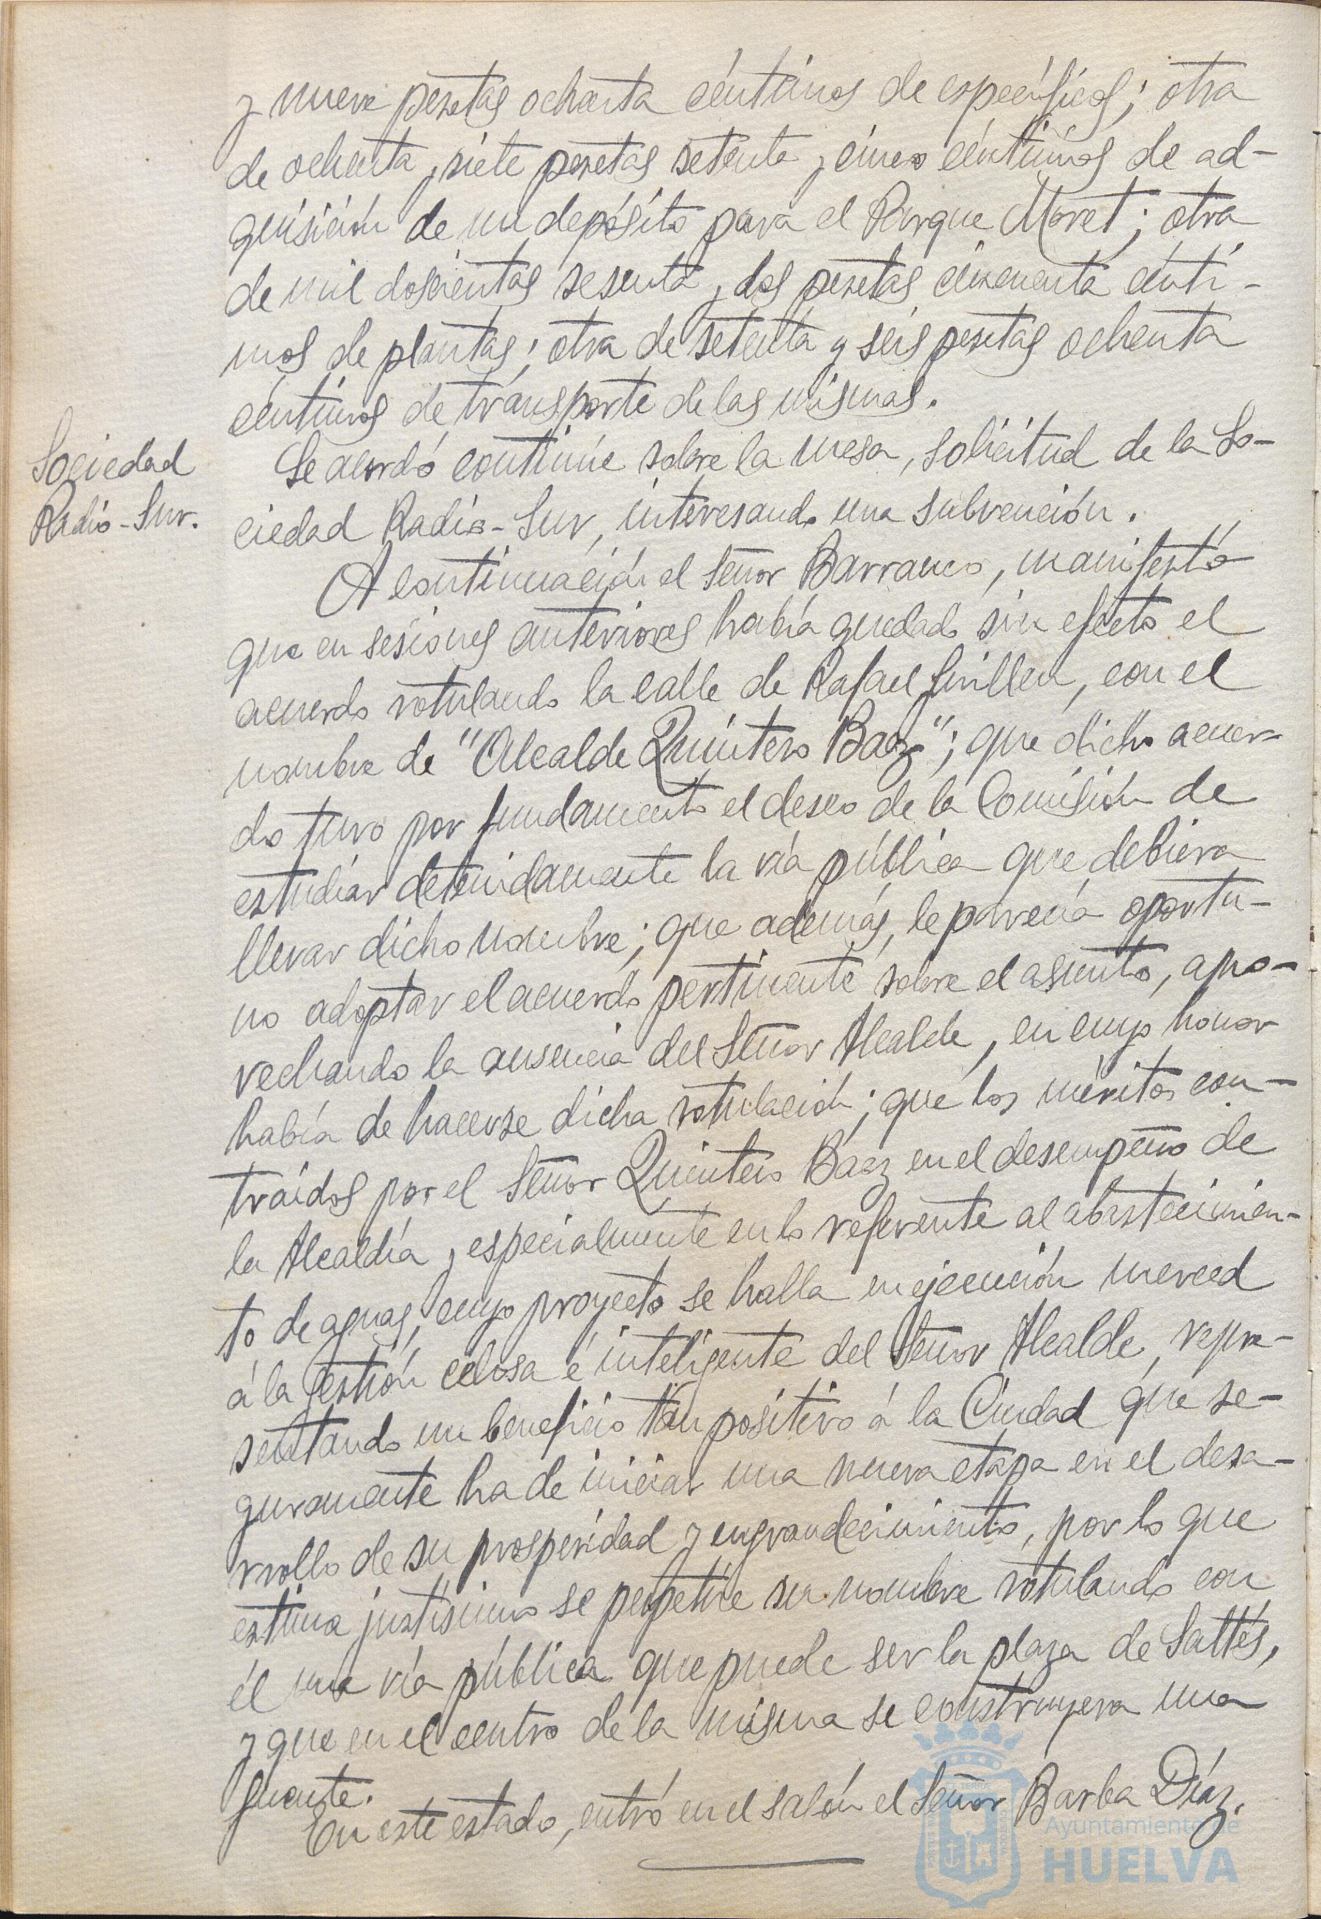 y nueve pesetas ochenta céntimos de específicos; otra
de ochenta y siete pesetas setenta y cinco céntimos de ad-
quisición de un depósito para el Parque Moret; otra
de mil doscientas sesenta y dos pesetas cincuenta cénti-
mos de plantas; otra de setenta y seis pesetas ochenta
céntimos de transporte de las mismas.
Sociedad
Radio-Sur.
Se acordó continúe sobre la mesa, solicitud de la So-
ciedad Radio-Sur, interesando una subvención.
A continuación el Señor Barranco, manifestó
que en sesiones anteriores había quedado sin efecto el
acuerdo rotulando la calle de Rafael Guillen, con el
nombre de "Alcalde Quintero Baez"; que dicho acuer-
do tuvo por fundamento el deseo de la Comisión de
estudiar detenidamente la vía pública que debiera
llevar dicho nombre; que además, le parecía oportu-
no adoptar el acuerdo pertinente sobre el asunto, apro-
vechando la ausencia del Señor Alcalde, en cuyo honor
había de hacerse dicha rotulación; que los méritos con-
traidos por el Señor Quintero Báez en el desempeño de
la Alcaldía y especialmente en lo referente al abastecimien-
to de aguas, cuyo proyecto se halla en ejecución merced
á la gestión celosa é inteligente del Señor Alcalde, repre-
sentando un beneficio tan positivo á la Ciudad que se-
guramente ha de iniciar una nueva etapa en el desa-
rrollo de su prosperidad y engrandecimiento, por lo que
estima justísimo se perpetúe su nombre rotulando con
él una vía pública que puede ser la plaza de Saltés,
y que en el centro de la misma se construyera una
fuente.
En este estado, entró en el salón el Señor Barba Díaz.
Ayuntamiento de
HUELVA